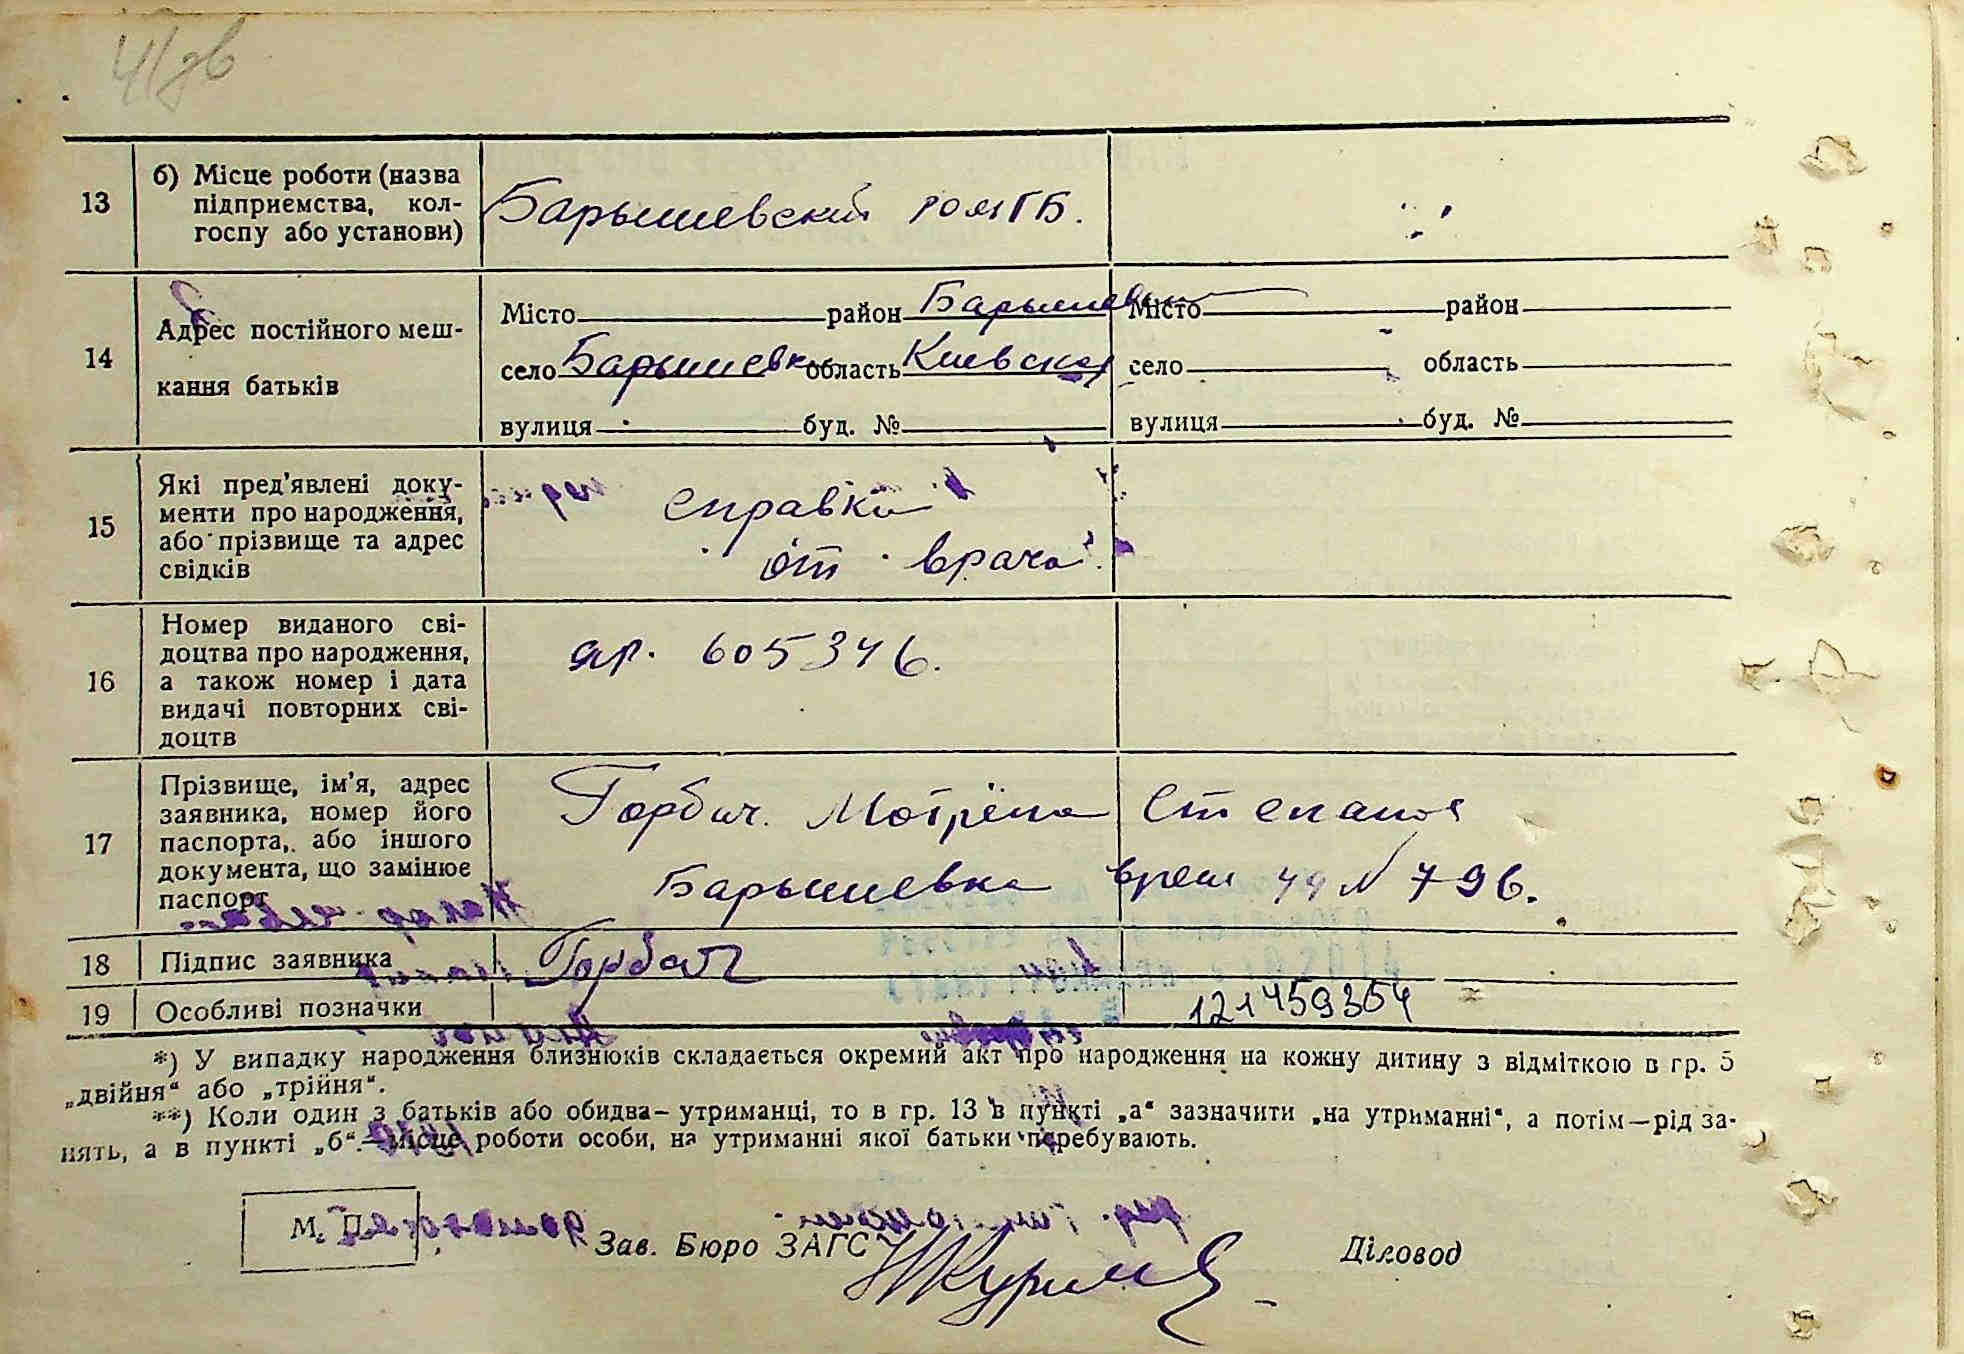 41дв
13
б) Місце роботи (назва
підприємства, кол-
госпу або установи)
Барышевский РОМГБ.
14
Адрес постійного меш-
кання батьків
Місто район Барышевка
село Барышевка область Киевская
вулиця буд. №
Місто район
село область
вулиця буд. №
15
Які пред'явлені доку-
менти про народження,
або прізвище та адрес
свідків
справка
от врача
16
Номер виданого сві-
доцтва про народження,
а також номер і дата
видачі повторних сві-
доцтв
яр. 605346.
17
Прізвище, ім'я, адрес
заявника, номер його
паспорта, або іншого
документа, що замінює
паспорт
Горбач Мотрёна Степанов
Барышевка врем 49 N 796.
18
Підпис заявника
Горбач
19
Особливі позначки
121459354
*) У випадку народження близнюків складається окремий акт про народження на кожну дитину з відміткою в гр. 5
„двійня“ або „трійня“.
**) Коли один з батьків або обидва—утриманці, то в гр. 13 в пункті „а“ зазначити „на утриманні“, а потім—рід за-
нять, а в пункті „б“—місце роботи особи, на утриманні якої батьки перебувають.
М. П.
Зав. Бюро ЗАГС
Діловод